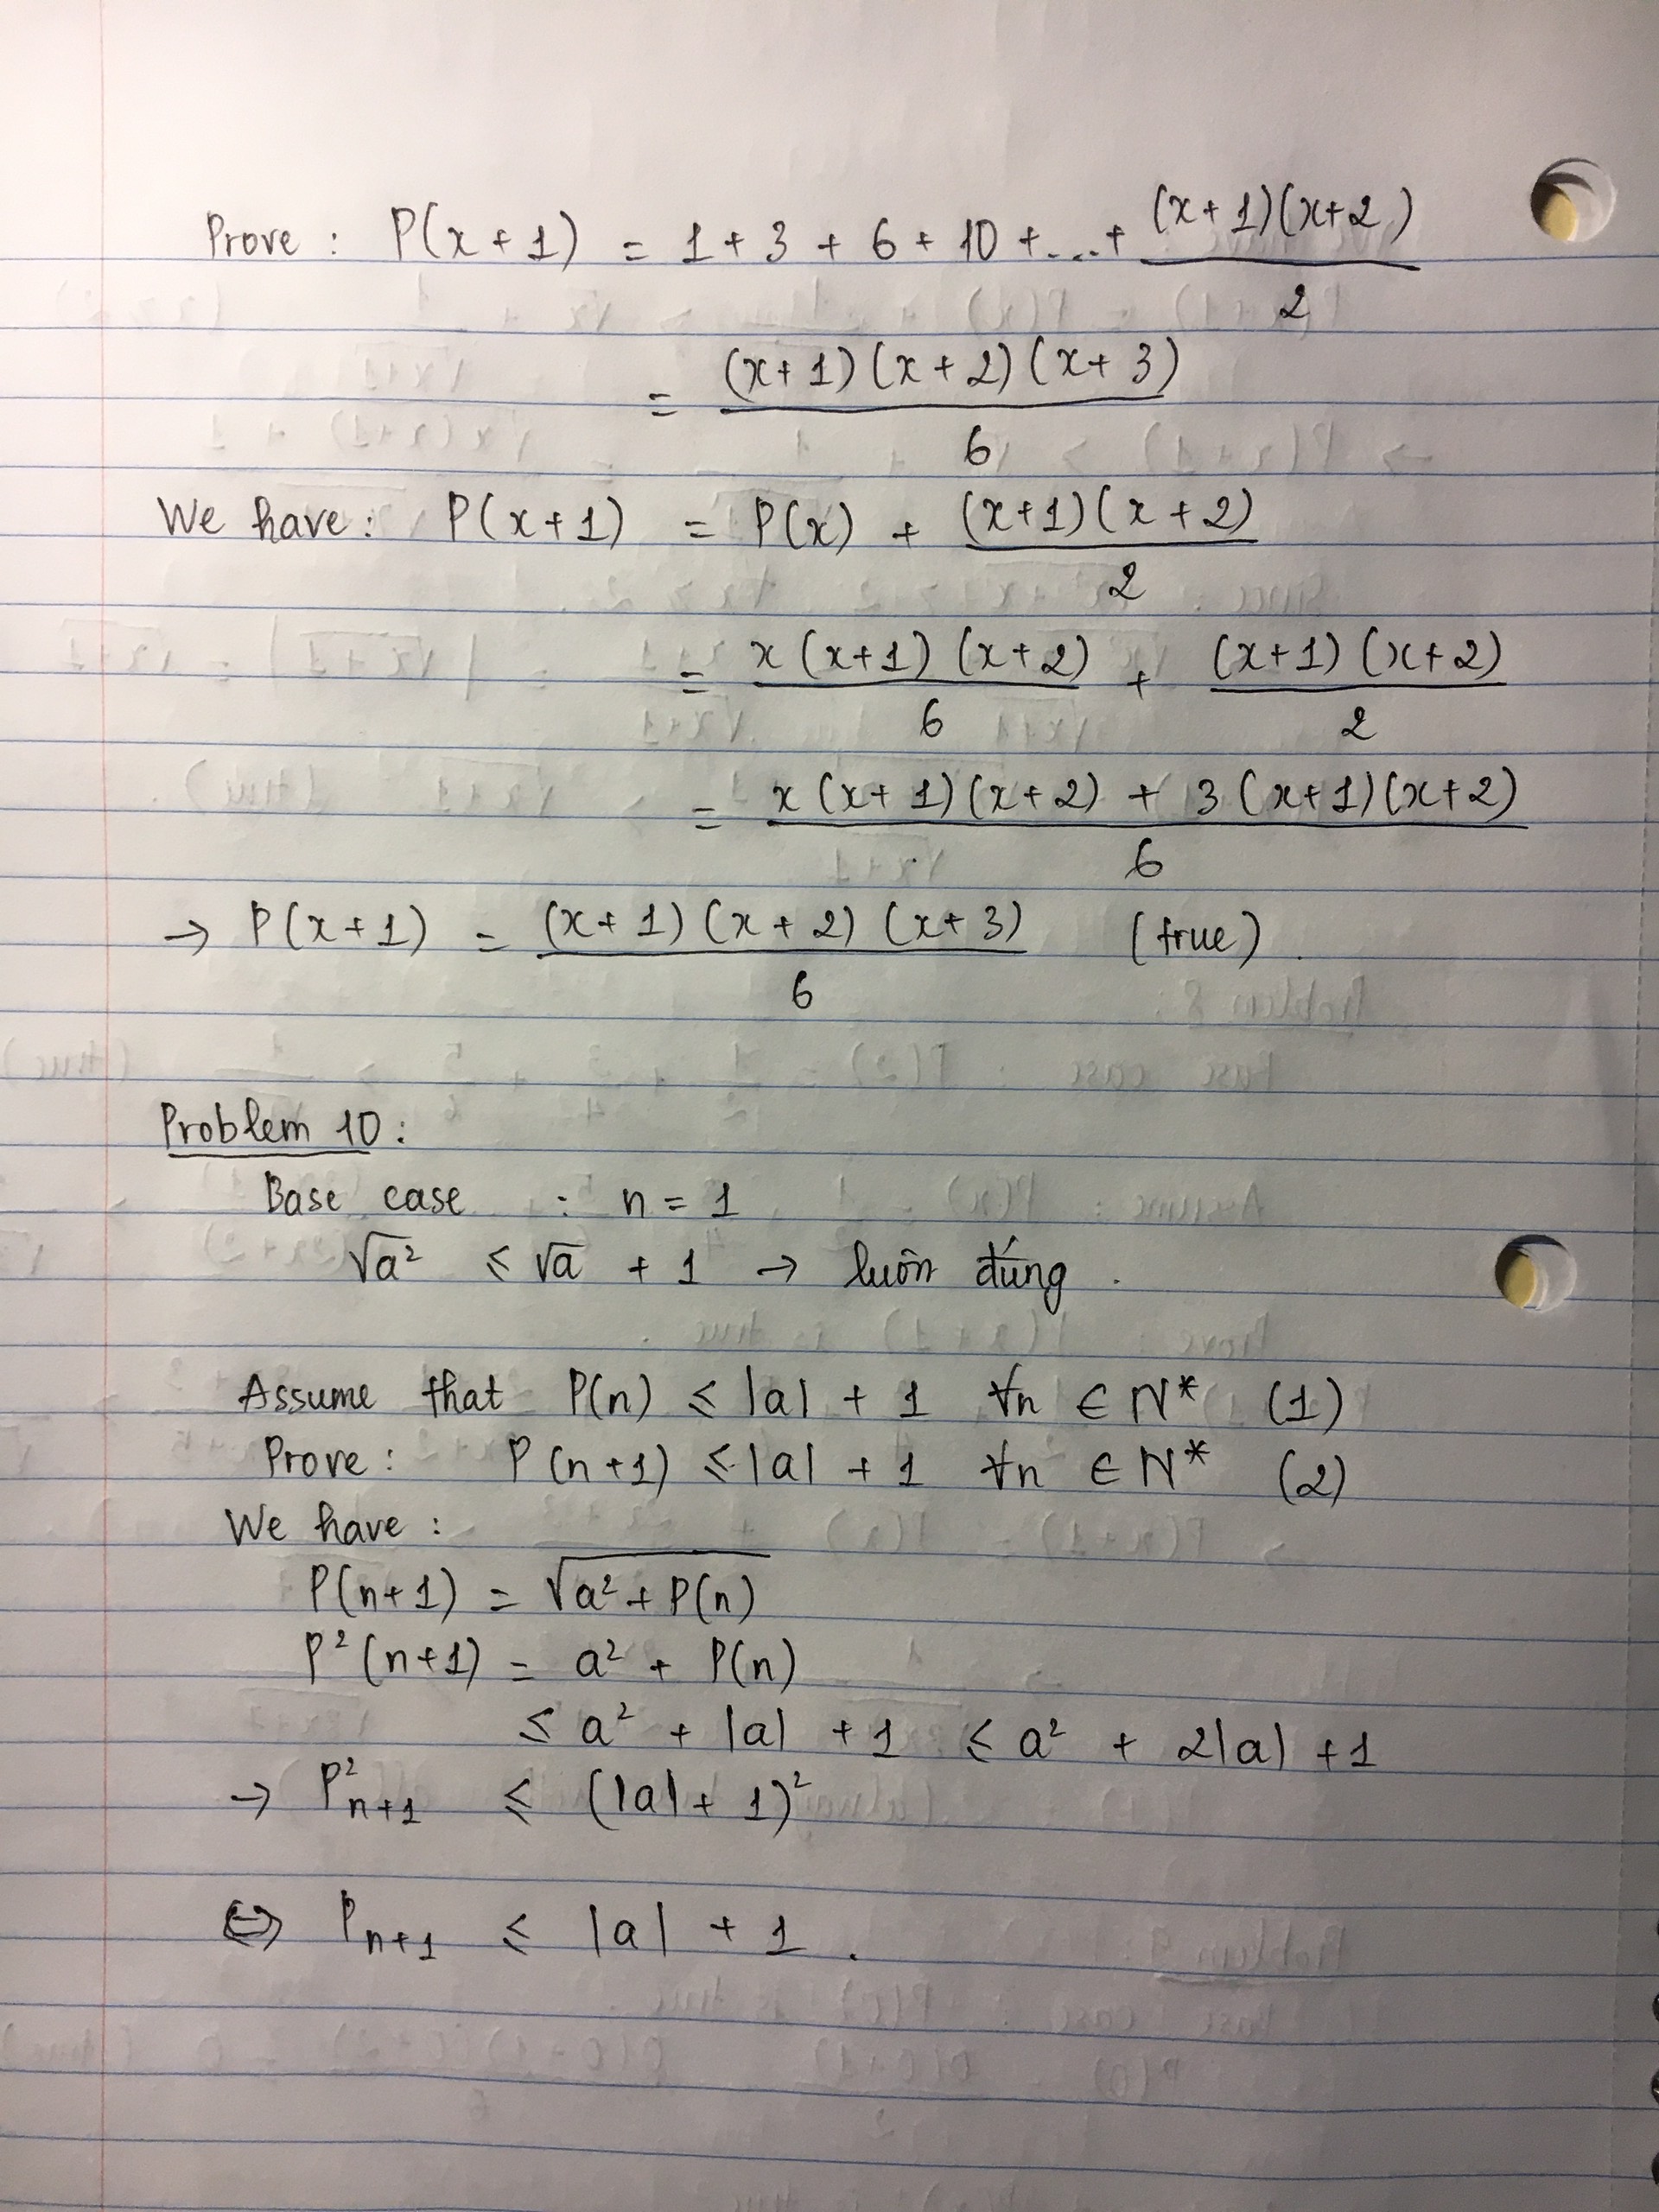 Prove : P(x + 1) = 1 + 3 + 6 + 10 + ... + (x + 1)(x + 2) / 2
= (x + 1)(x + 2)(x + 3) / 6
We have : P(x + 1) = P(x) + (x+1)(x + 2) / 2
= x (x+1) (x+2) / 6 + (x+1) (x+2) / 2
= x (x + 1)(x + 2) + 3 (x+1)(x+2) / 6
→ P(x + 1) = (x + 1) (x + 2) (x + 3) / 6 (true) .
Problem 10 :
Base case : n = 1
√a² ≤ √a + 1 → luôn đúng .
Assume that P(n) ≤ |a| + 1 ∀n ∈ N* (1)
Prove : P (n+1) ≤ |a| + 1 ∀n ∈ N* (2)
We have :
P(n+1) = √(a² + P(n))
P²(n+1) = a² + P(n)
≤ a² + |a| + 1 ≤ a² + 2|a| + 1
→ P²ₙ₊₁ ≤ (|a| + 1)²
⇔ Pₙ₊₁ ≤ |a| + 1 .